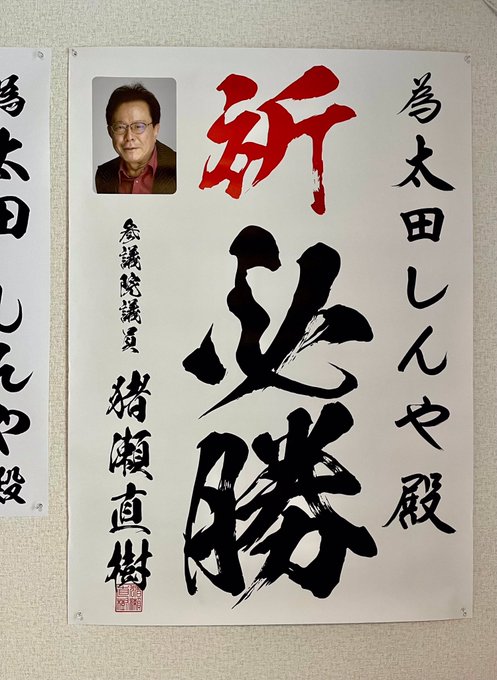 為太田しんや殿
祈
必勝
参議院議員 猪瀬直樹
為太田しんや殿